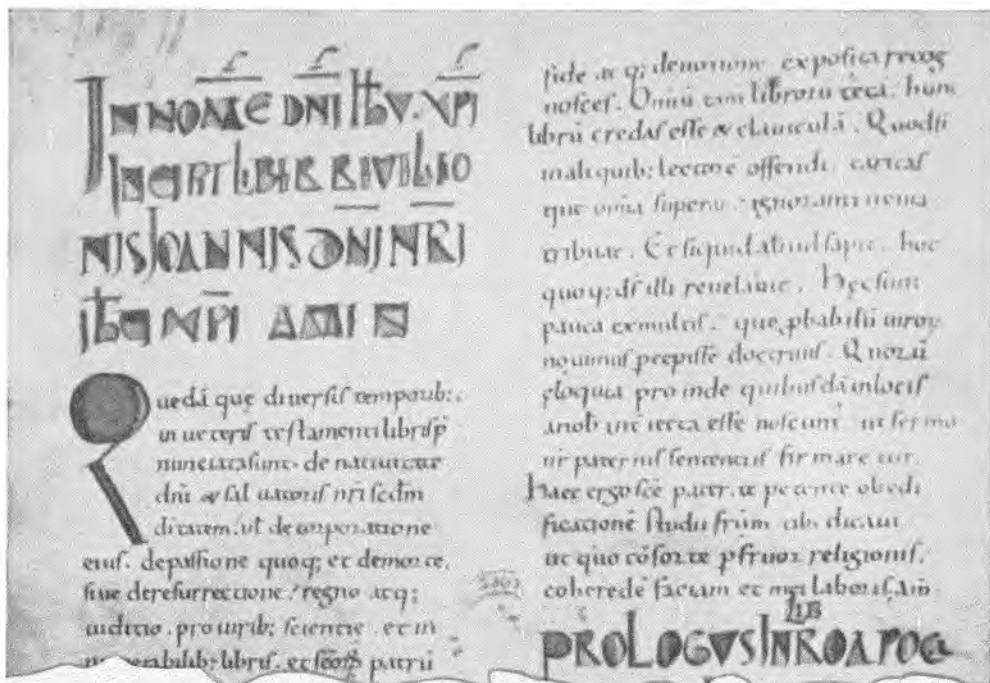 IN NOME DNI IHV. XPI
INCIPIT LIBER REVELATIO
NIS IOANNIS DNI NRI
IHU XPI AMEN
Quedā quę diuersis temporib;
in ueteris testamenti libris p̄
nunciata sunt. de natiuitate
dn̄i & saluatoris nr̄i sed̄m
ditatem. ut de corporatione
eius. de passione quoq; et de morte.
siue de resurrectione. regno atq;
iuditio. pro uirib; scientie. et in
libris. et patrū
fide ac q; deuotione exposita recog
nosces. Omniū tam librorū hunc
librū credas esse & clauiculā. Quodsi
in aliquib; lectorē offendi. caritas
que omīa superat. ignoranti uenia
tribuat. Et siquid aliud sapit. hoc
quoq; ds̄ illi reuelauit. Hęc sunt
pauca ex multis. que
docerunt. Quorū
ęloquia proinde quibusdā in locis
esse noscunt. ut sermo
paternis sententiis firmare tur.
Haec ergo sc̄e pater. te petente
studii dicaui
ut quo cōsorte pfruor religionis.
coheredē faciam et mei laboris. am̄
LIB
PROLOGVS IN APOCA